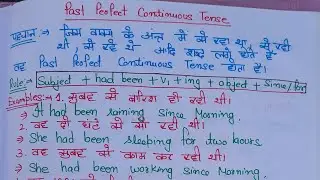 Past Perfect Continuous Tense
पहचान :→ जिस वाक्य के अंत में से रहा था, से रही
थी, से रहे थे आदि शब्द लगे होते हैं
वह Past Perfect Continuous Tense होता है।
Rule:→ Subject + had been + V₁ + ing + object + since/for
Examples:→ 1. सुबह से बारिश हो रही थी।
⇒ It had been raining since Morning.
2. वह दो घंटे से सो रही थी।
⇒ She had been sleeping for two hours
3. वह सुबह से काम कर रही थी।
⇒ She had been working since Morning.